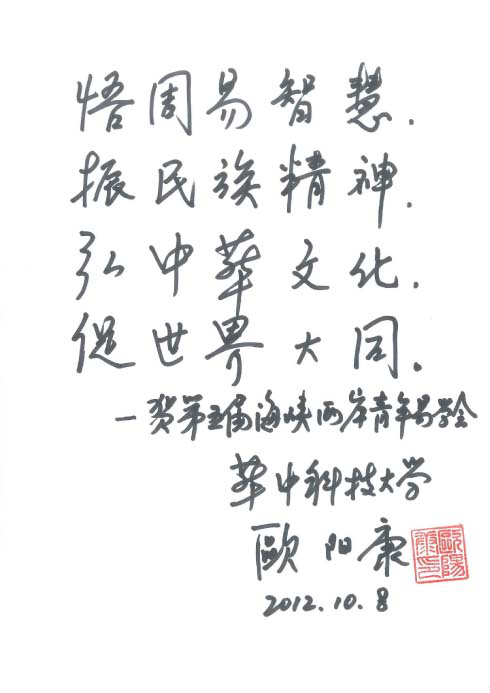 悟周易智慧.
振民族精神.
弘中華文化.
促世界大同.
—贺第五届海峡两岸青年易学会
華中科技大学
歐阳康
2012.10.8
歐陽康印